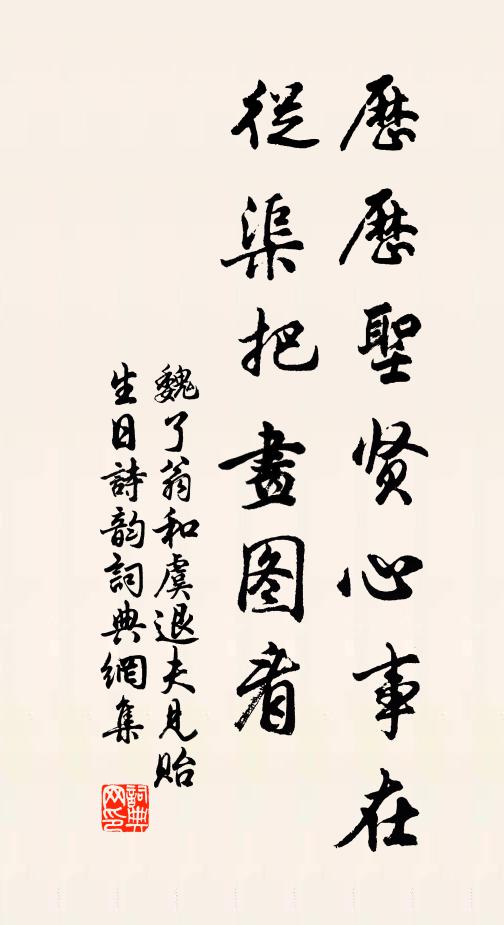 歷歷聖贤心事在
從渠把畫图看
魏了翁和虞退夫見貽
生日詩韵詞典網集
詞典
网印